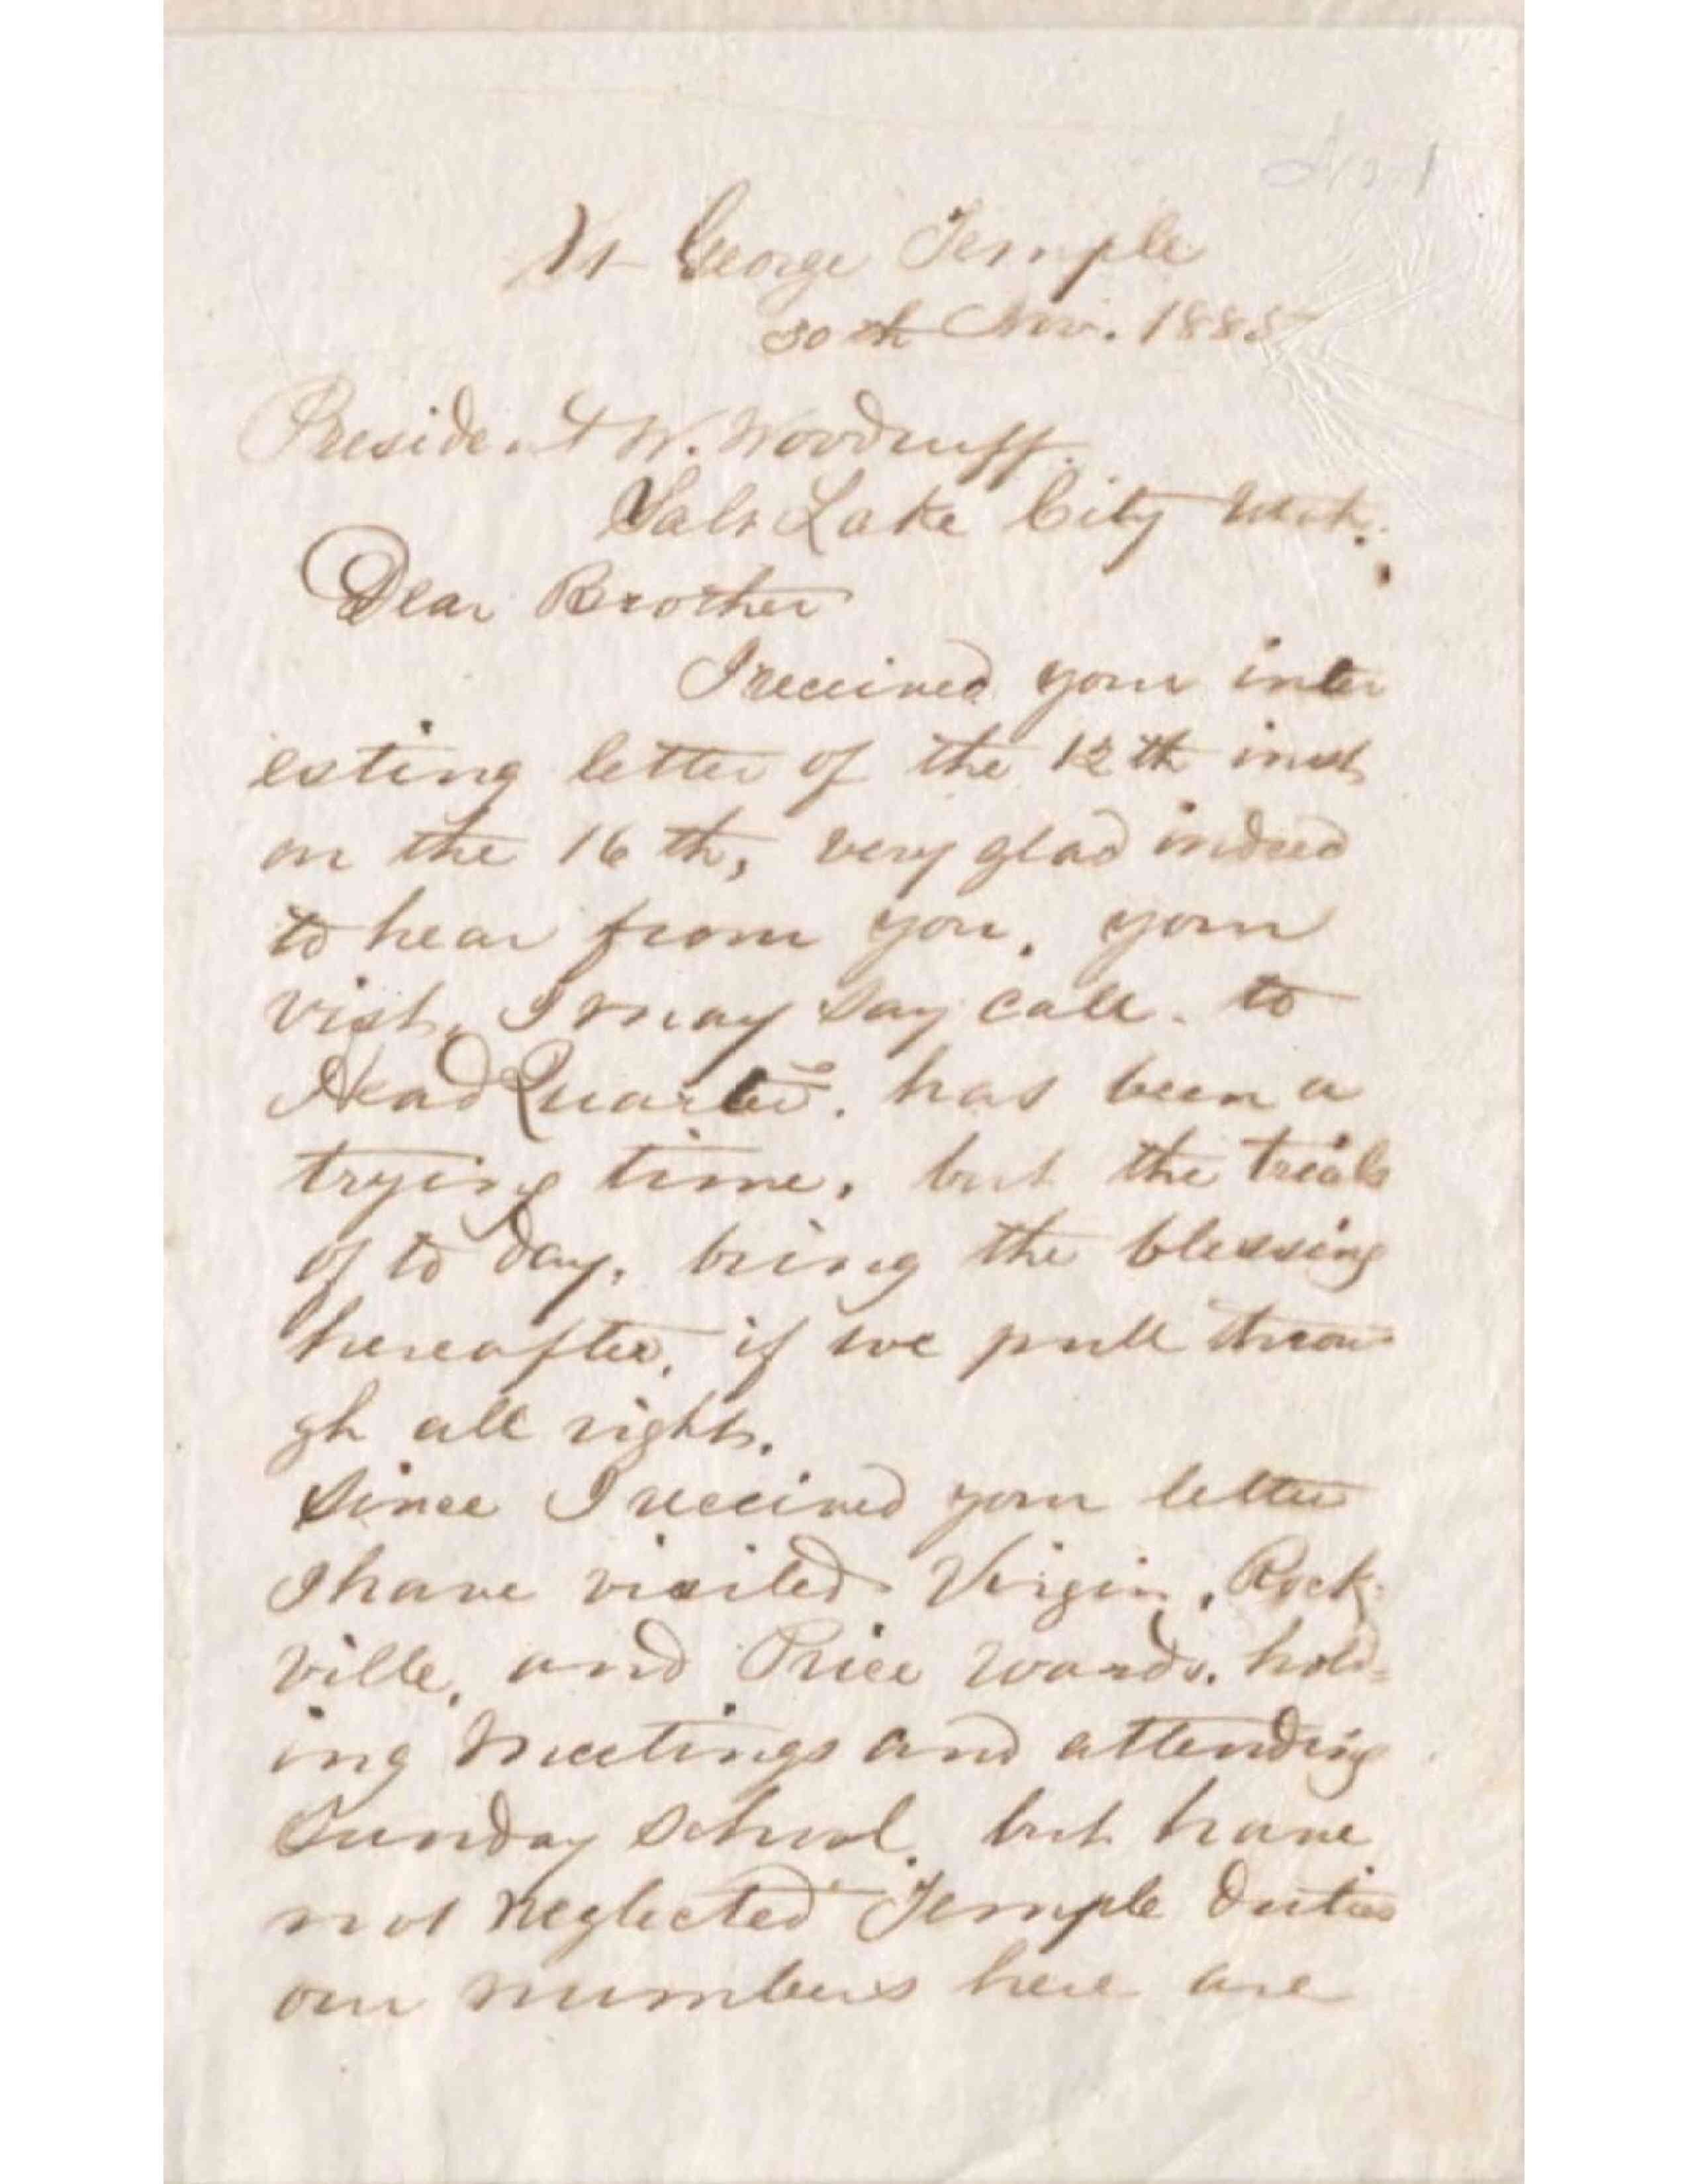 St George Temple
30th Nov. 1885
President W. Woodruff.
Salt Lake City Utah.
Dear Brother
I received your inter
esting letter of the 12th inst
on the 16th, very glad indeed
to hear from you. your
visit, I may say call. to
Head Quarters. has been a
trying time, but the trials
of to day, bring the blessing
hereafter, if we pull throu
gh all right.
Since I received your letter
I have visited Virgin, Rock-
ville, and Price Wards. hold=
ing Meetings and attending
Sunday School. but have
not neglected Temple duties
our numbers here are